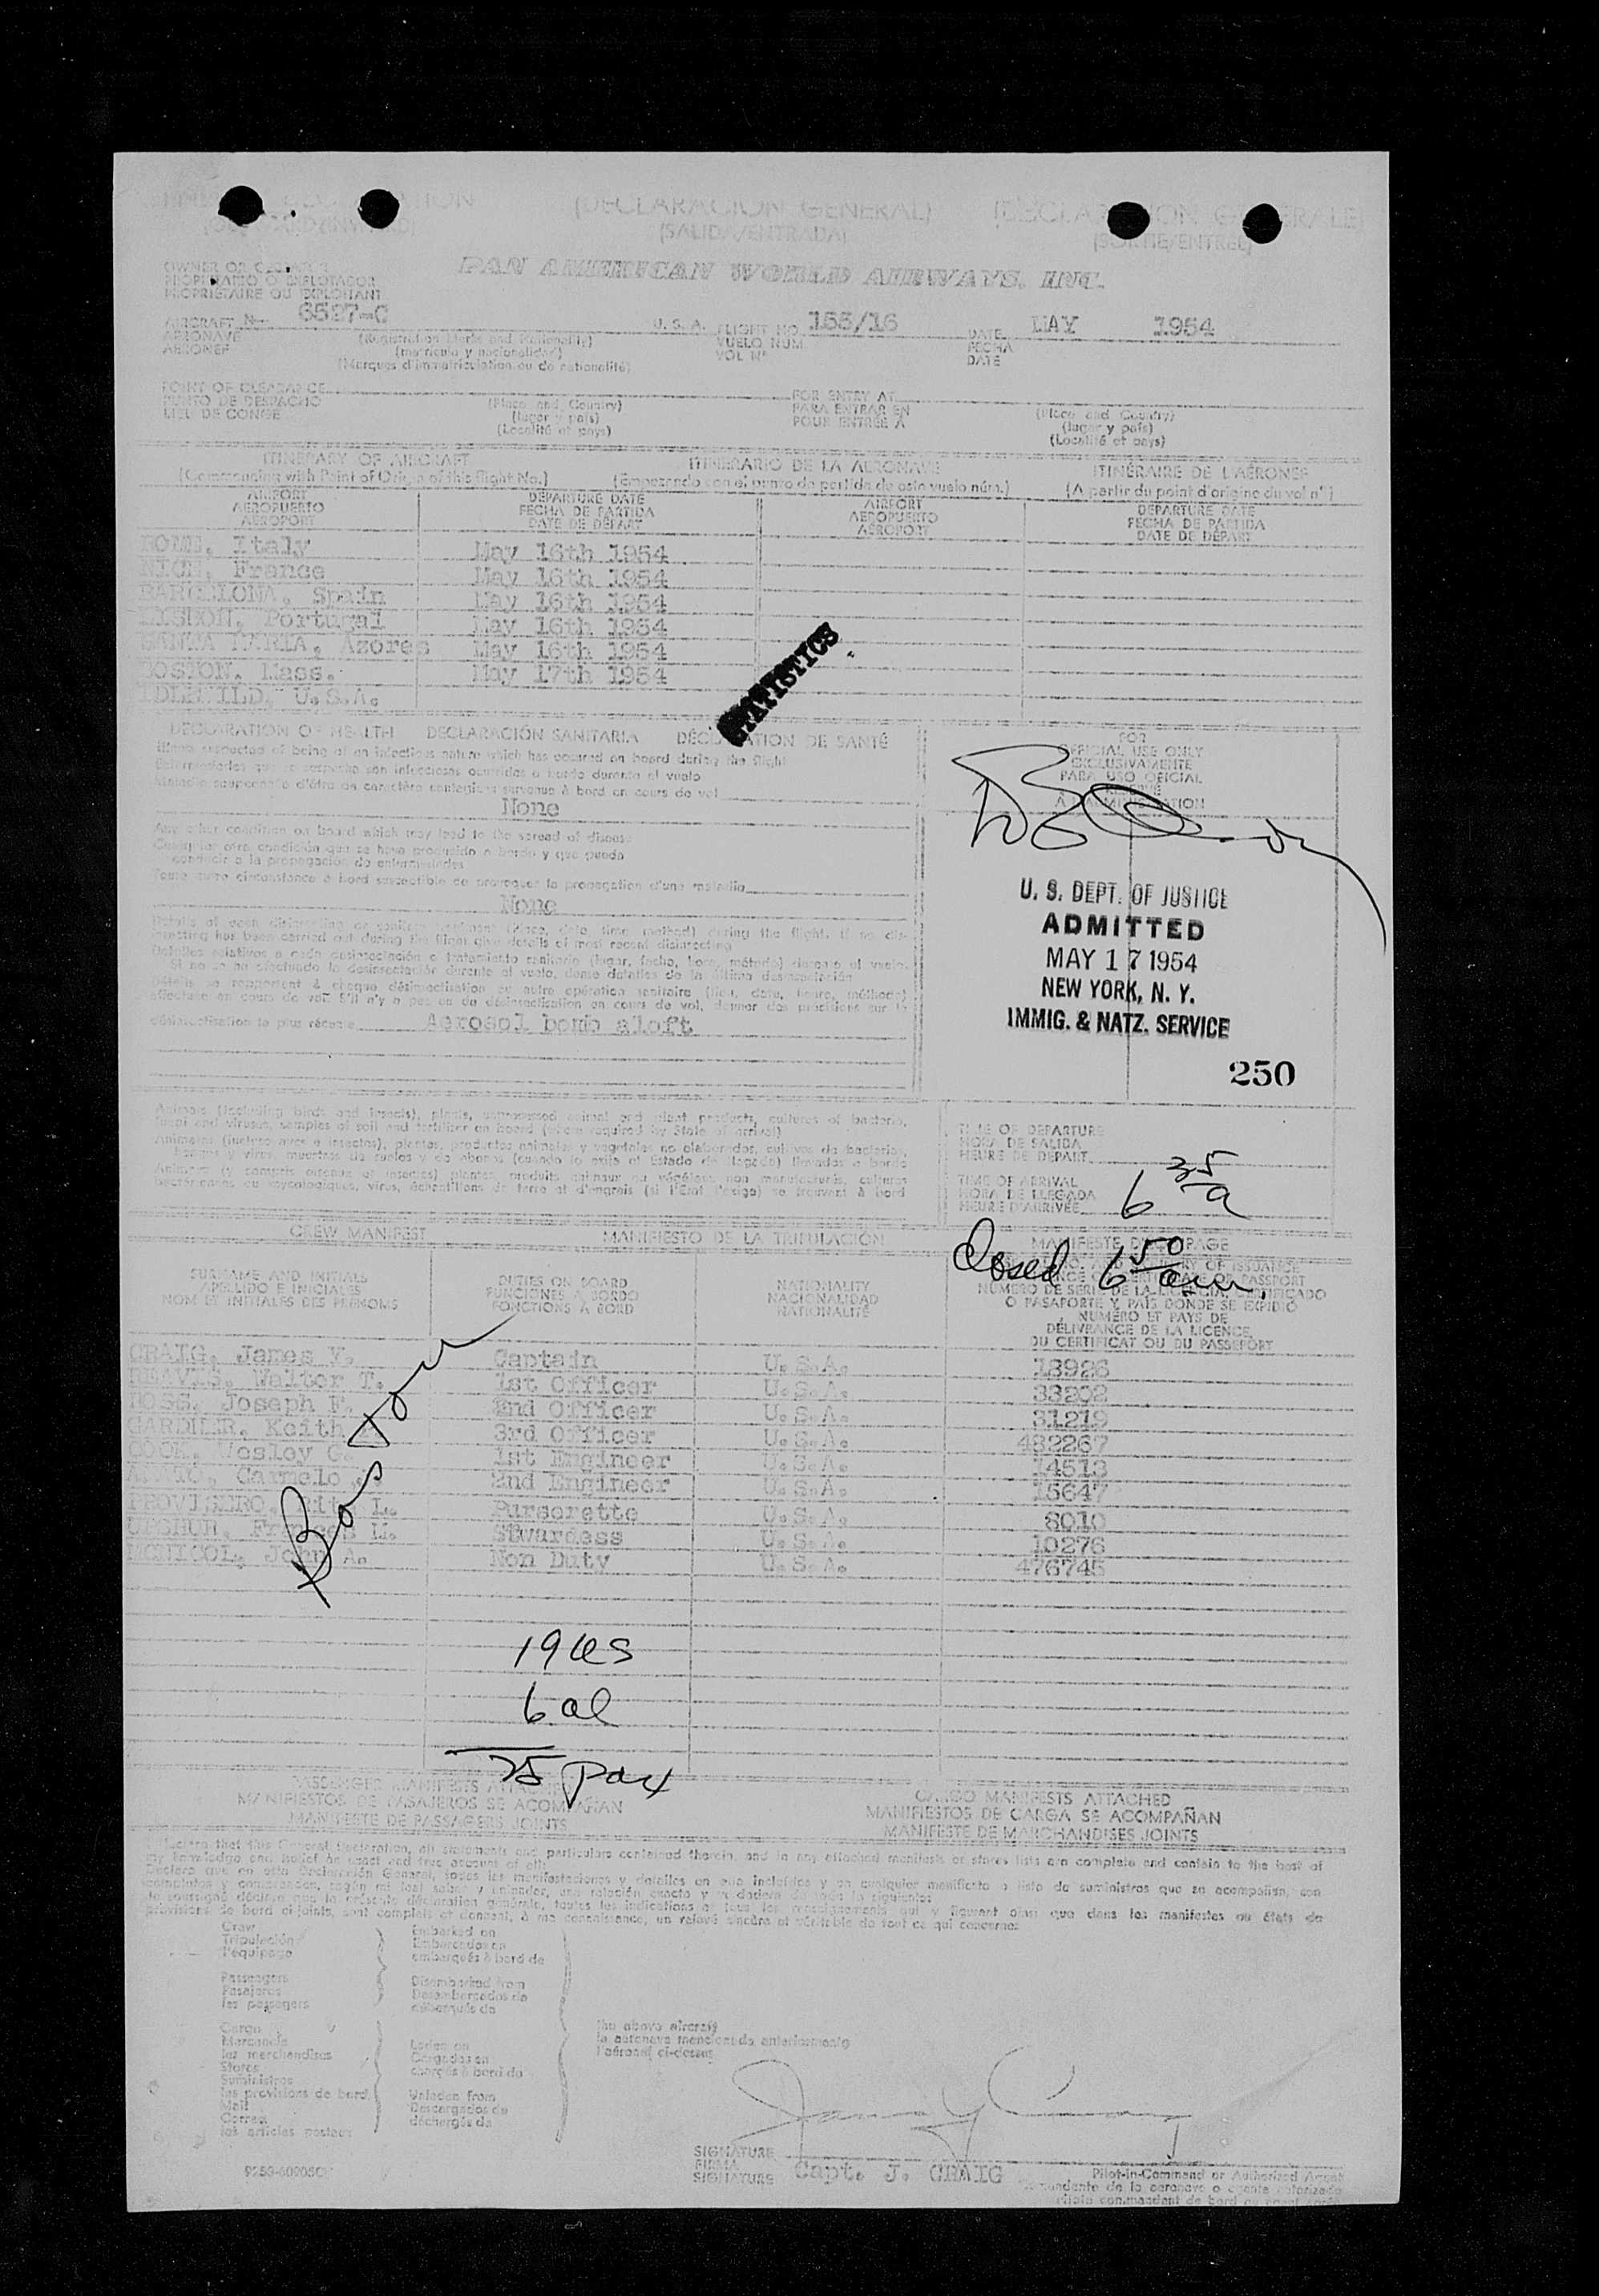 (DECLARACION GENERAL)
(SALIDA/ENTRADA)
(SORTIE/ENTREE)
OWNER OR
PROPIETARIO O EXPLOTADOR
PROPRIETAIRE OU EXPLOITANT
PAN AMERICAN WORLD AIRWAYS, INC.
AIRCRAFT N- 6527-C U. S. A. FLIGHT NO. 155/16 DATE MAY 1954
AERONAVE (Registration Marks and Nationality) VUELO NUM. FECHA
AERONEF (matricula y nacionalidad) VOL Nº DATE
(Marques d'immatriculation ou de nationalité)
POINT OF CLEARANCE FOR ENTRY AT
PUNTO DE DESPACHO (Place and Country) PARA ENTRAR EN (Place and Country)
LIEU DE CONGE (lugar y país) POUR ENTRÉE A (lugar y país)
(Localité et pays) (Localité et pays)
ITINERARY OF AIRCRAFT ITINERARIO DE LA AERONAVE ITINÉRAIRE DE L'AÉRONEF
(Commencing with Point of Origin of this flight No.) (Empezando con el punto de partida de este vuelo núm.) (A partir du point d'origine du vol nº)
AIRPORT DEPARTURE DATE AIRPORT DEPARTURE DATE
AEROPUERTO FECHA DE PARTIDA AEROPUERTO FECHA DE PARTIDA
AEROPORT DATE DE DÉPART AÉROPORT DATE DE DÉPART
ROME, Italy May 16th 1954
NICE, France May 16th 1954
BARCELONA, Spain May 16th 1954
LISBON, Portugal May 16th 1954
SANTA MARIA, Azores May 16th 1954
BOSTON, Mass. May 17th 1954
IDLEWILD, U.S.A.
STATISTICS
DECLARATION OF HEALTH DECLARACIÓN SANITARIA DÉCLARATION DE SANTÉ
Illness suspected of being of an infectious nature which has occurred on board during the flight
Enfermedades que se sospecha son infecciosas ocurridas a bordo durante el vuelo
Maladie soupçonnée d'être de caractère contagieux survenue à bord en cours de vol
None
Any other condition on board which may lead to the spread of disease
Cualquier otra condición que se haya producido a bordo y que pueda
conducir a la propagación de enfermedades
Toute autre circonstance à bord susceptible de provoquer la propagation d'une maladie
None
Details of each disinsecting or sanitary treatment (place, date, time, method) during the flight. If no dis-
insecting has been carried out during the flight give details of most recent disinsecting
Detalles relativos a cada desinsectación o tratamiento sanitario (lugar, fecha, hora, método) durante el vuelo.
Si no se ha efectuado la desinsectación durante el vuelo, dense detalles de la última desinsectación
effectuée en cours de vol. S'il n'y a pas eu de désinsectisation en cours de vol, donner des précisions sur la
désinsectisation la plus récente Aerosol bomb aloft
FOR
OFFICIAL USE ONLY
EXCLUSIVAMENTE
PARA USO OFICIAL
RESERVÉ
A L'ADMINISTRATION
U. S. DEPT. OF JUSTICE
ADMITTED
MAY 17 1954
NEW YORK, N. Y.
IMMIG. & NATZ. SERVICE
250
Animals (including birds and insects), plants, unprocessed animal and plant products, cultures of bacteria,
fungi and viruses, samples of soil and fertilizer on board (where required by State of arrival)
Animales (incluso aves e insectos), plantas, productos animales y vegetales no elaborados, cultivos de bacterias,
hongos y virus, muestras de suelos y de abonos (cuando lo exija el Estado de llegada) llevados a bordo
Animaux (y compris oiseaux et insectes) plantes, produits animaux ou végétaux non manufacturés, cultures
bactériennes ou mycologiques, virus, échantillons de terre et d'engrais (si l'Etat l'exige) se trouvant à bord
TIME OF DEPARTURE
HORA DE SALIDA
HEURE DE DÉPART
TIME OF ARRIVAL
HORA DE LLEGADA
HEURE D'ARRIVÉE 6 35 a
Closed 6 50 am.
CREW MANIFEST MANIFIESTO DE LA TRIPULACIÓN MANIFESTE D'EQUIPAGE
SURNAME AND INITIALS DUTIES ON BOARD NATIONALITY
APELLIDO E INICIALES FUNCIONES A BORDO NACIONALIDAD
NOM ET INITIALES DES PRÉNOMS FONCTIONS A BORD NATIONALITÉ
NÚMERO DE SERIE DE LA LICENCIA, CERTIFICADO
O PASAPORTE Y PAÍS DONDE SE EXPIDIÓ
NUMÉRO ET PAYS DE
DÉLIVRANCE DE LA LICENCE,
DU CERTIFICAT OU DU PASSEPORT
CRAIG, James V. Captain U.S.A. 18926
REAVIS, Walter T. 1st Officer U.S.A. 33202
ROSS, Joseph F. 2nd Officer U.S.A. 31219
GARDNER, Keith 3rd Officer U.S.A. 482267
COOK, Wesley C. 1st Engineer U.S.A. 14513
Carmelo 2nd Engineer U.S.A. 15647
Rita L. Pursorette U.S.A. 8010
UPCHUR, Frances H. Stwardess U.S.A. 10276
MCNICOL, John A. Non Duty U.S.A. 476745
Boston
19 us
6 al
25 pax
PASSENGER MANIFESTS ATTACHED CARGO MANIFESTS ATTACHED
MANIFIESTOS DE PASAJEROS SE ACOMPAÑAN MANIFIESTOS DE CARGA SE ACOMPAÑAN
MANIFESTE DE PASSAGERS JOINTS MANIFESTE DE MARCHANDISES JOINTS
I declare that this General Declaration, all statements and particulars contained therein, and in any attached manifests or stores lists are complete and contain to the best of
my knowledge and belief an exact and true account of all:
Declaro que en esta Declaración General, todas las manifestaciones y detalles en ella incluídos y en cualquier manifiesto o lista de suministros que se acompañan, son
completos y comprenden, según mi leal saber y entender, una relación exacta y verdadera de todo lo siguiente:
Je soussigné déclare que la présente déclaration générale, toutes les indications et tous les renseignements qui y figurent ainsi que dans les manifestes ou états de
provisions de bord ci-joints, sont complets et donnent, à ma connaissance, un relevé sincère et véritable de tout ce qui concerne:
Crew Embarked on
Tripulación Embarcados en
l'équipage embarqués à bord de
Passengers Disembarked from
Pasajeros Desembarcados de
les passagers débarqués de
Cargo The above aircraft
Mercancía Laden on la aeronave mencionada anteriormente
les marchandises Cargados en l'aéronef ci-dessus
Stores chargés à bord de
Suministros
les provisions de bord
Mail Unladen from
Correo Descargados de
les articles postaux déchargés de
James V Craig
SIGNATURE
FIRMA
SIGNATURE Capt. J. CRAIG Pilot-in-Command or Authorized Agent
Comandante de la aeronave o agente autorizado